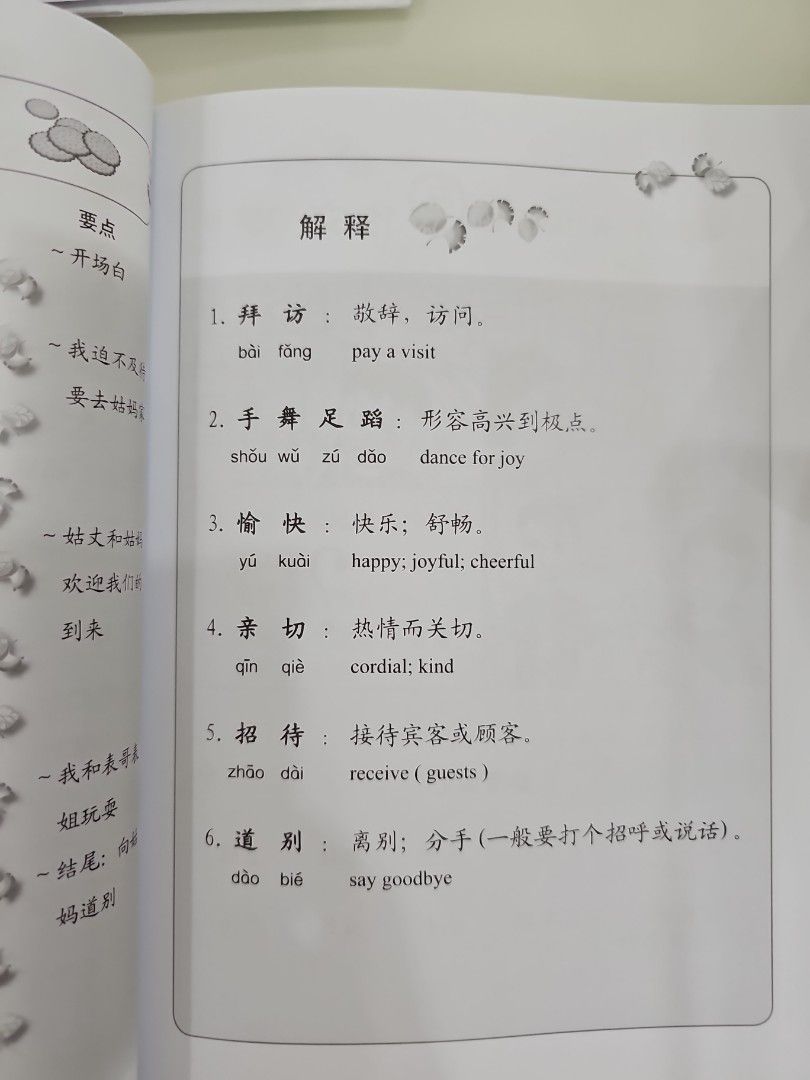 要点
~ 开场白
~ 我迫不及待
要去姑妈家
~ 姑丈和姑妈
欢迎我们的
到来
~ 我和表哥表
姐玩耍
~ 结尾：向姑
妈道别
解 释
1. 拜 访 ： 敬辞，访问。
bài fǎng pay a visit
2. 手 舞 足 蹈 ： 形容高兴到极点。
shǒu wǔ zú dǎo dance for joy
3. 愉 快 ： 快乐；舒畅。
yú kuài happy; joyful; cheerful
4. 亲 切 ： 热情而关切。
qīn qiè cordial; kind
5. 招 待 ： 接待宾客或顾客。
zhāo dài receive ( guests )
6. 道 别 ： 离别；分手(一般要打个招呼或说话)。
dào bié say goodbye